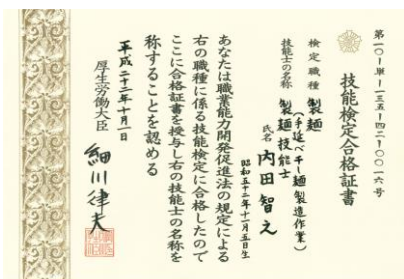 第一〇-単-一三五-四二-〇〇一六号
技能検定合格証書
検定職種 製麺
(手延べ干し麺製造作業)
技能士の名称 製麺技能士
氏名 内田智之
昭和五十二年十一月五日生
あなたは職業能力開発促進法の規定による
右の職種に係る技能検定に合格したので
ここに合格証書を授与し右の技能士の名称を
称することを認める
平成二十二年十月一日
厚生労働大臣 細川律夫